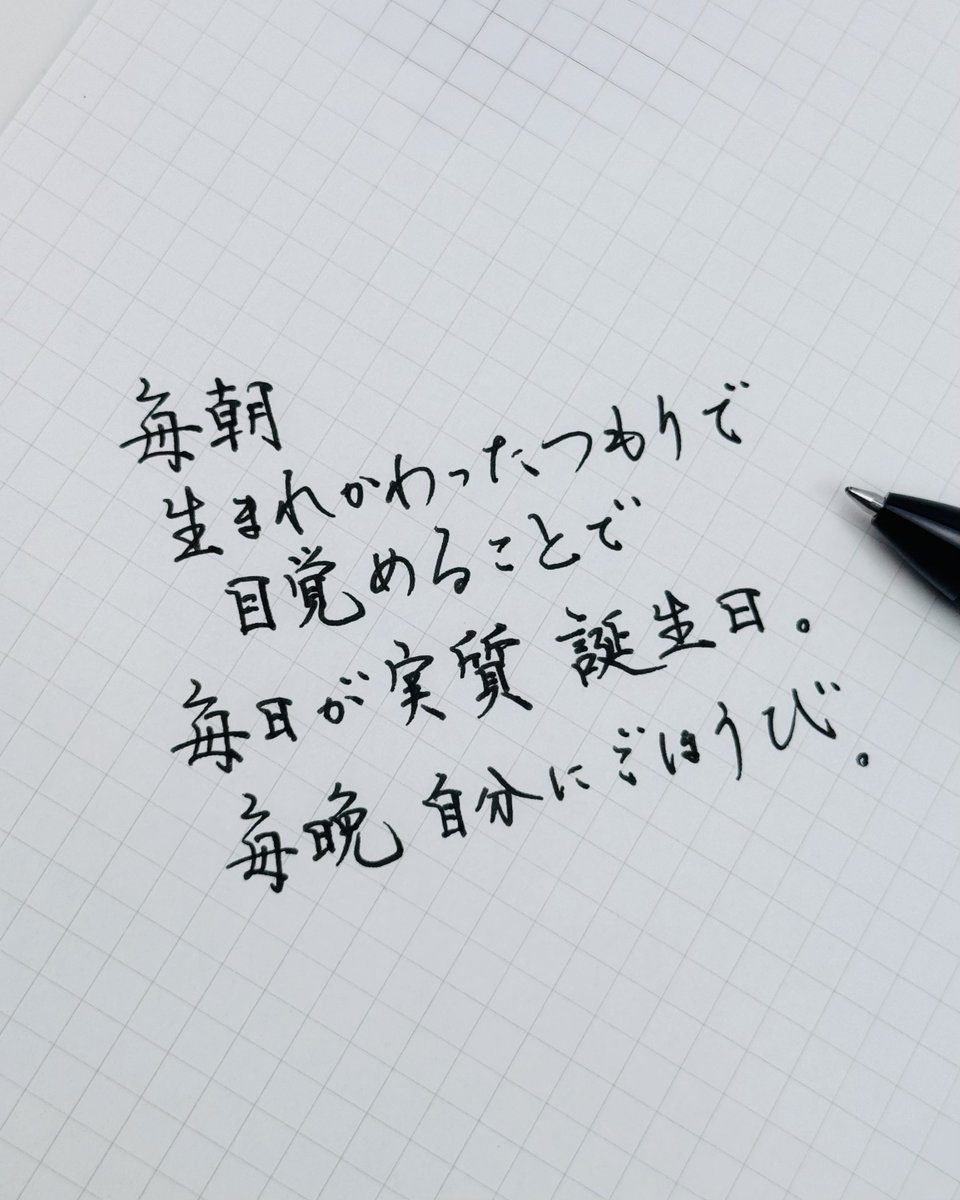 毎朝
生まれかわったつもりで
目覚めることで
毎日が実質 誕生日。
毎晩 自分にごほうび。